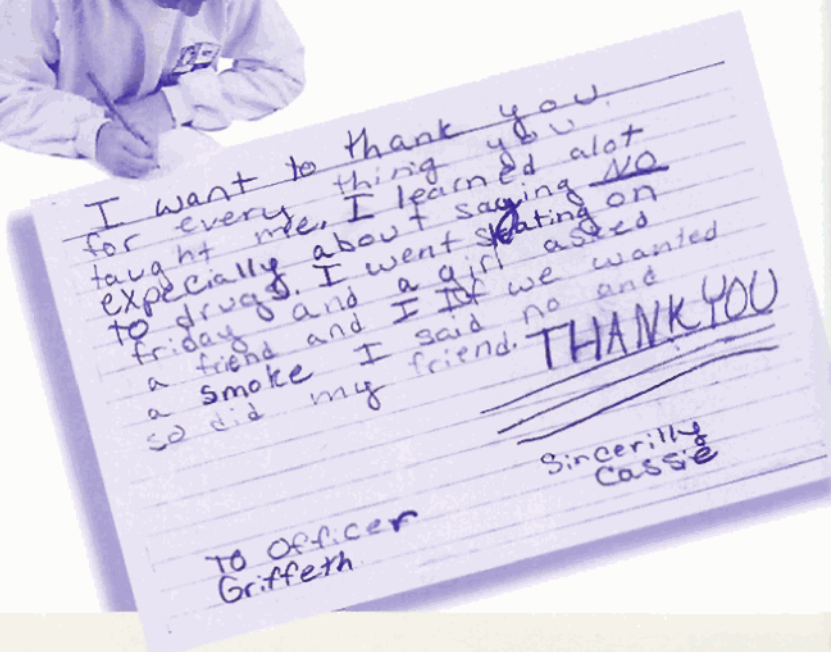 I want to thank you
for every thing you
taught me. I learned alot
expecially about saying NO
to drugs. I went skating on
friday and a girl asked
a friend and I If we wanted
a smoke I said no and
so did my friend. THANK YOU
Sincerilly
Cassie
TO Officer
Griffeth